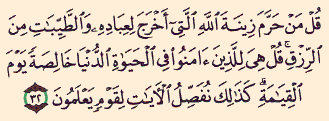 قُلْ مَنْ حَرَّمَ زِينَةَ اللَّهِ الَّتِي أَخْرَجَ لِعِبَادِهِ وَالطَّيِّبَاتِ مِنَ
الرِّزْقِ ۚ قُلْ هِيَ لِلَّذِينَ ءَامَنُوا فِي الْحَيَوٰةِ الدُّنْيَا خَالِصَةً يَوْمَ
الْقِيَامَةِ ۗ كَذَٰلِكَ نُفَصِّلُ الْآيَاتِ لِقَوْمٍ يَعْلَمُونَ ٣٢